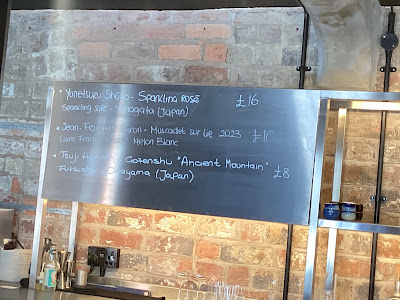 Yonetsuru Shuzo - Sparkling ROSÉ £16
Sparkling - Yamagata (Japan)
Jean- - Muscadet sur lie 2023 £10
Melon Blanc
Tsuji Gozenshu "Ancient Mountain" £8
Okayama (Japan)